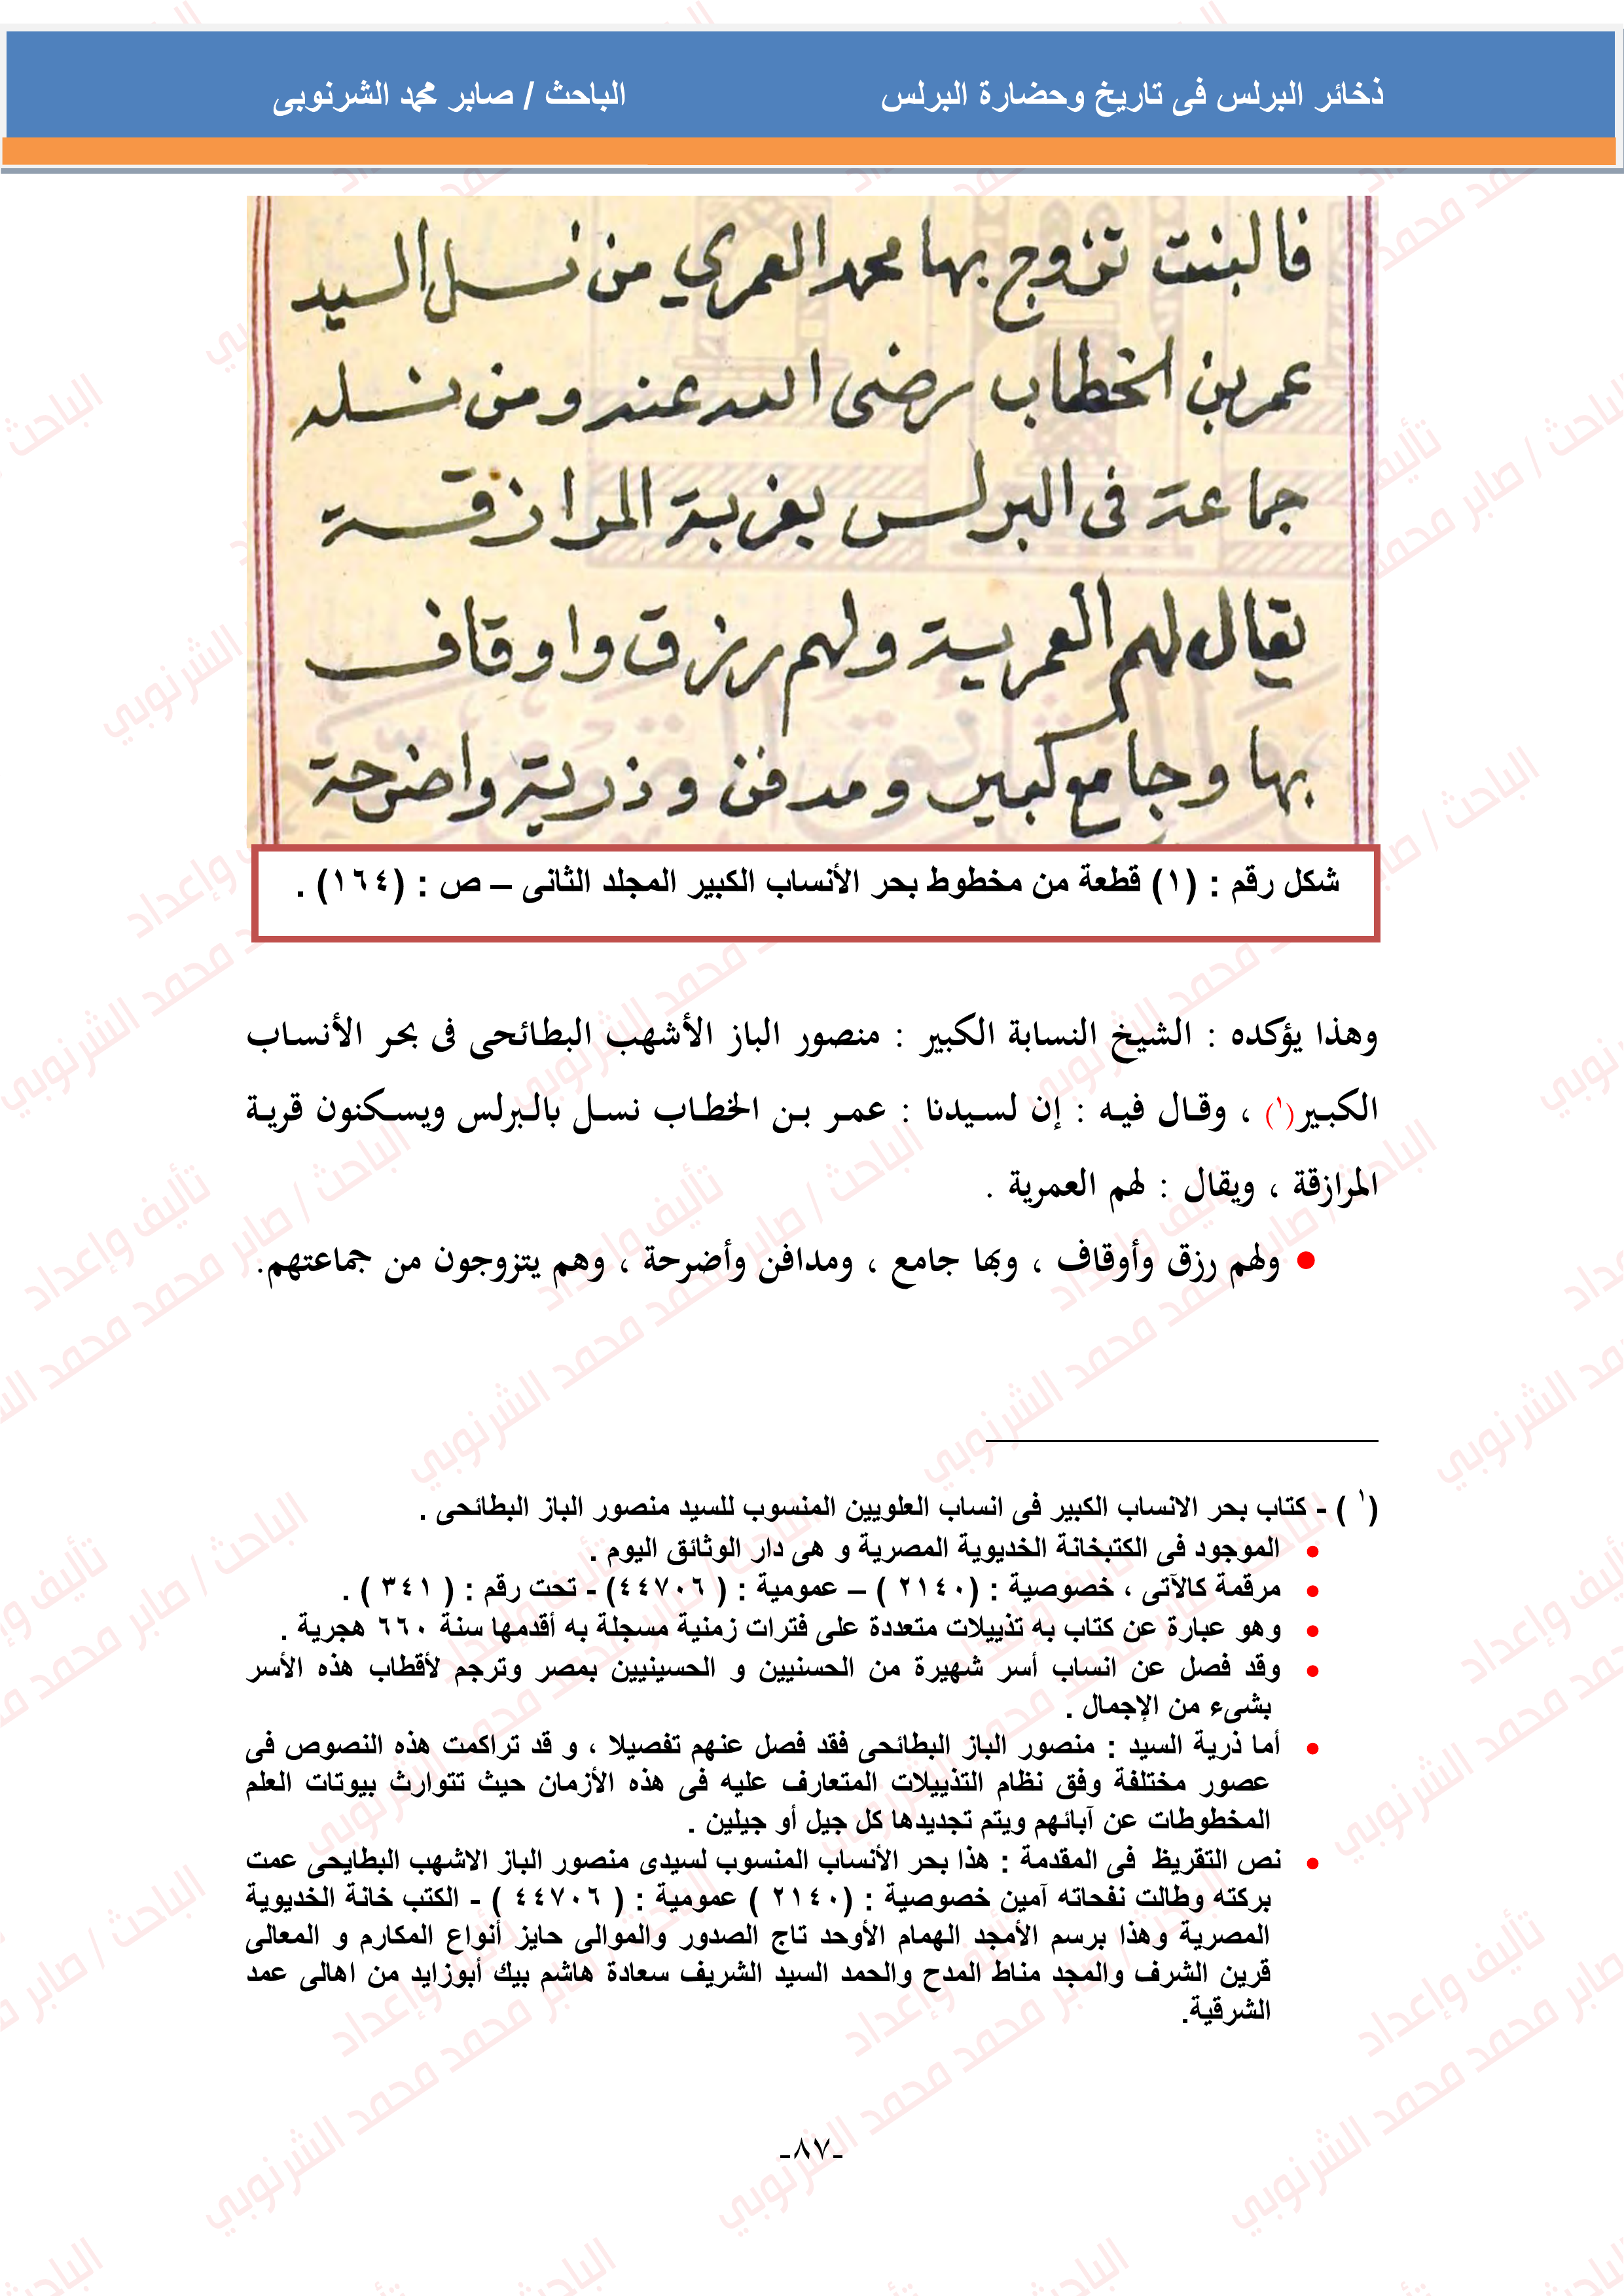 ذخائر البرلس فى تاريخ وحضارة البرلس الباحث / صابر محمد الشرنوبى
فالبنت تزوج بها محمد العمري من نسل السيد
عمر بن الخطاب رضى الله عنه ومن نسله
جماعة فى البرلس بغربية المرازقة
يقال لهم العمرية ولهم رزق واوقاف
بها وجامع كبير ومدفن وذرية واضرحة
شكل رقم : (١) قطعة من مخطوط بحر الأنساب الكبير المجلد الثانى – ص : (١٦٤) .
وهذا يؤكده : الشيخ النسابة الكبير : منصور الباز الأشهب البطائحى فى بحر الأنساب
الكبير(١) ، وقال فيه : إن لسيدنا : عمر بن الخطاب نسل بالبرلس ويسكنون قرية
المرازقة ، ويقال : لهم العمرية .
• ولهم رزق وأوقاف ، وبها جامع ، ومدافن وأضرحة ، وهم يتزوجون من جماعتهم.
(١ ) - كتاب بحر الانساب الكبير فى انساب العلويين المنسوب للسيد منصور الباز البطائحى .
• الموجود فى الكتبخانة الخديوية المصرية و هى دار الوثائق اليوم .
• مرقمة كالآتى ، خصوصية : (٢١٤٠ ) – عمومية : ( ٤٤٧٠٦) - تحت رقم : ( ٣٤١ ) .
• وهو عبارة عن كتاب به تذييلات متعددة على فترات زمنية مسجلة به أقدمها سنة ٦٦٠ هجرية .
• وقد فصل عن انساب أسر شهيرة من الحسنيين و الحسينيين بمصر وترجم لأقطاب هذه الأسر
بشىء من الإجمال .
• أما ذرية السيد : منصور الباز البطائحى فقد فصل عنهم تفصيلا ، و قد تراكمت هذه النصوص فى
عصور مختلفة وفق نظام التذييلات المتعارف عليه فى هذه الأزمان حيث تتوارث بيوتات العلم
المخطوطات عن آبائهم ويتم تجديدها كل جيل أو جيلين .
• نص التقريظ فى المقدمة : هذا بحر الأنساب المنسوب لسيدى منصور الباز الاشهب البطايحى عمت
بركته وطالت نفحاته آمين خصوصية : (٢١٤٠ ) عمومية : ( ٤٤٧٠٦ ) - الكتب خانة الخديوية
المصرية وهذا برسم الأمجد الهمام الأوحد تاج الصدور والموالى حايز أنواع المكارم و المعالى
قرين الشرف والمجد مناط المدح والحمد السيد الشريف سعادة هاشم بيك أبوزايد من اهالى عمد
الشرقية.
-٨٧-
تأليف وإعداد
الباحث / صابر محمد محمد الشرنوبي